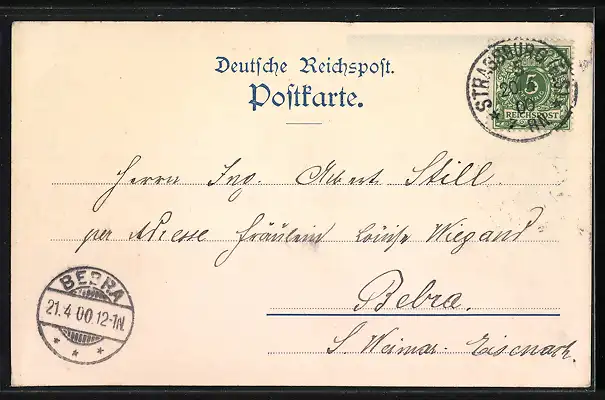 Deutsche Reichspost.
Postkarte.
STRASSBURG (ELS)
20.
00
7-8N
5
REICHSPOST
Herrn Ing. Albert Still.
per Adresse Fräulein Louise Wiegand
Bebra.
S. Weimar-Eisenach.
BEBRA
21.4 00.12-1N.